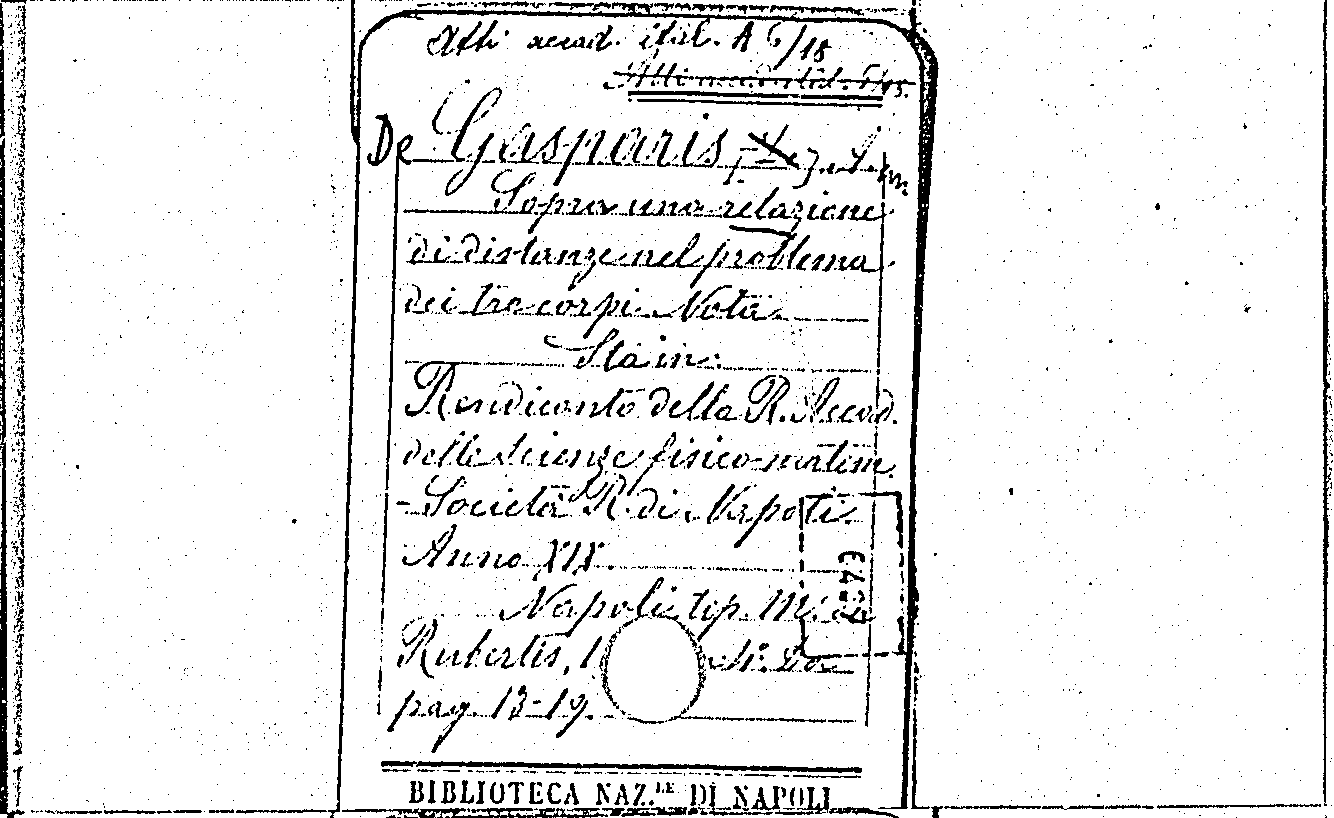 Atti accad. ital. A 6/18
De Gasparis,
Sopra una relazione
di distanze nel problema
dei tre corpi. Nota.
Sta in:
Rendiconto della R. Accad.
delle scienze fisico-matem.
- Società R. di Napoli.
Anno XIX.
Napoli, tip.
Rubertis,
pag. 13-19.
BIBLIOTECA NAZ.LE DI NAPOLI